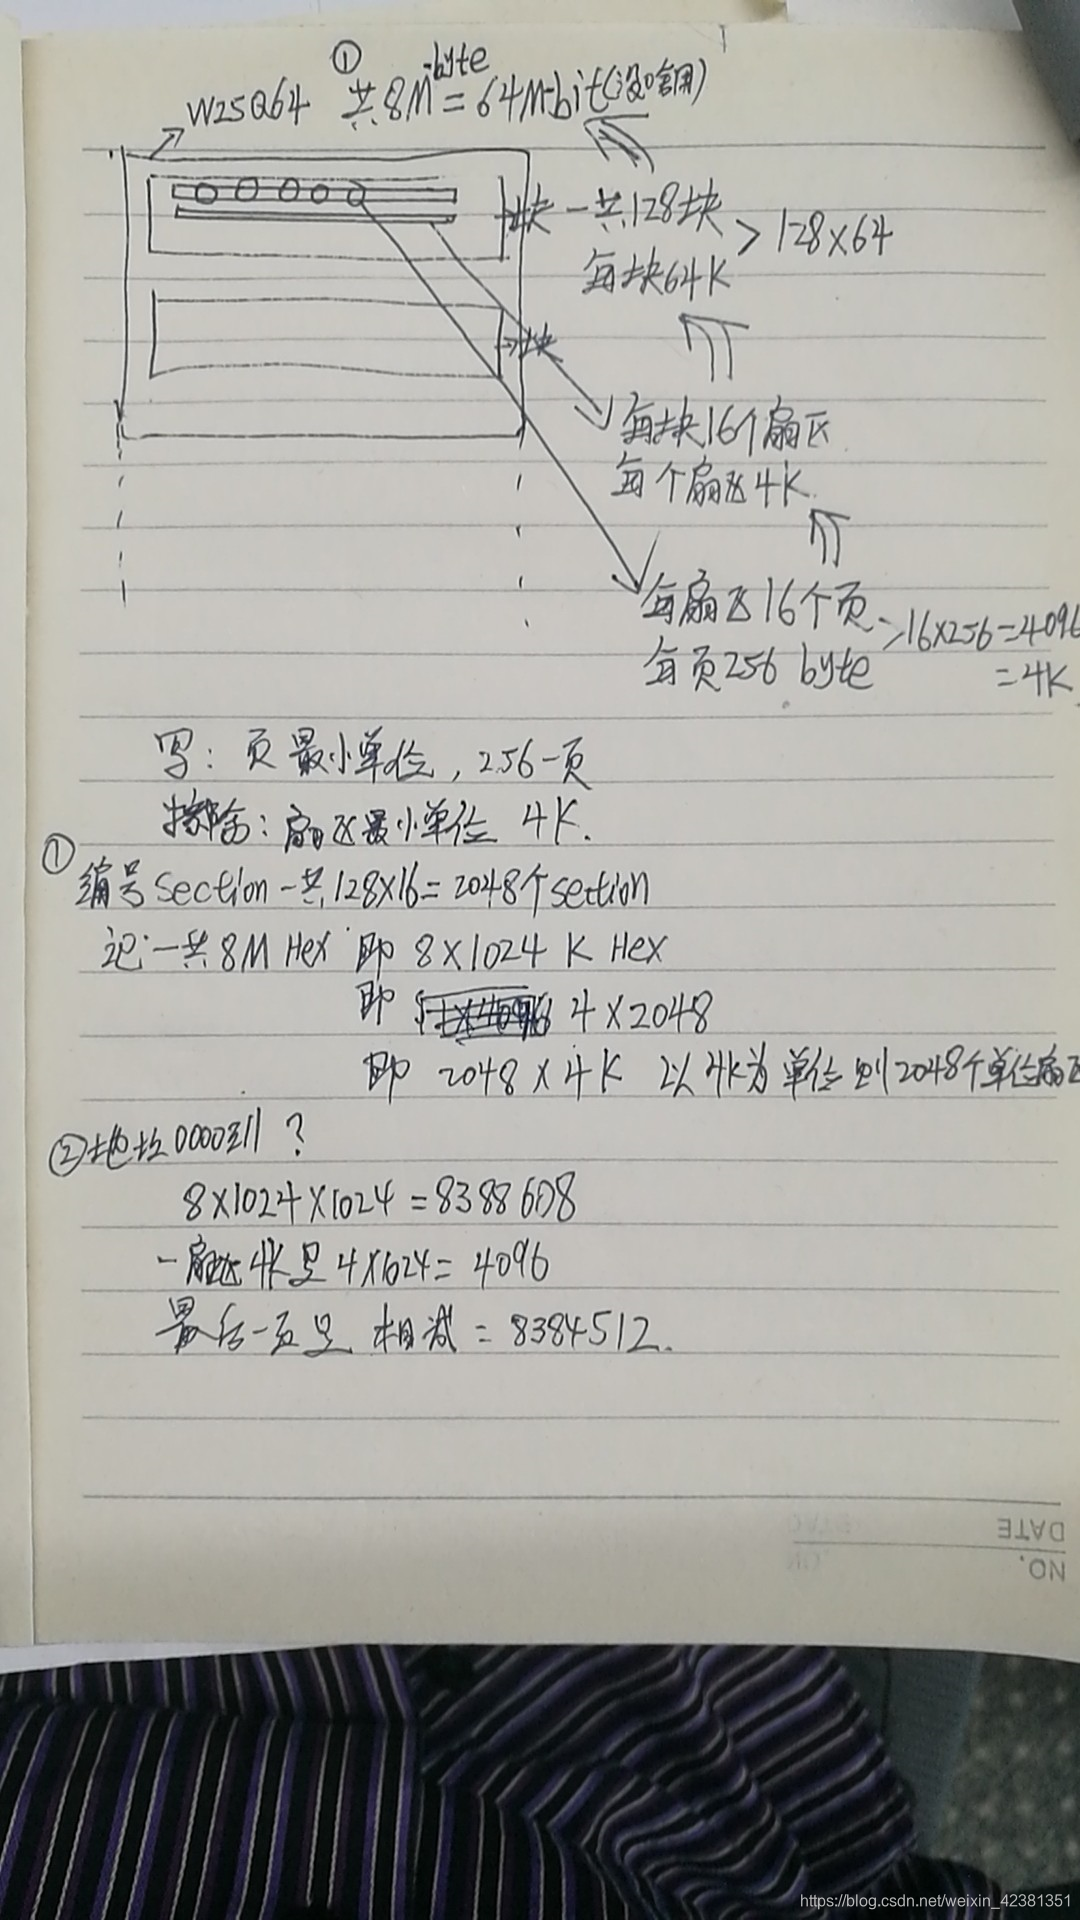 ①
W25Q64 共8M-byte=64M-bit(没啥用)
块 一共128块 > 128×64
每块64K
块
每块16个扇区
每个扇区4K.
每扇区16个页 >16×256=4096
每页256 byte =4K.
写: 页最小单位, 256一页
擦除: 扇区最小单位 4K.
① 编号Section一共128×16=2048个section
记:一共8M Hex 即 8×1024 K Hex
即 4×2048
即 2048×4K 以4K为单位则2048个单位扇区
②地址0000到 ?
8×1024×1024=8388608
一扇区4K是 4×1024= 4096
最后一页是 相减 = 8384512.
DATE
NO.
https://blog.csdn.net/weixin_42381351